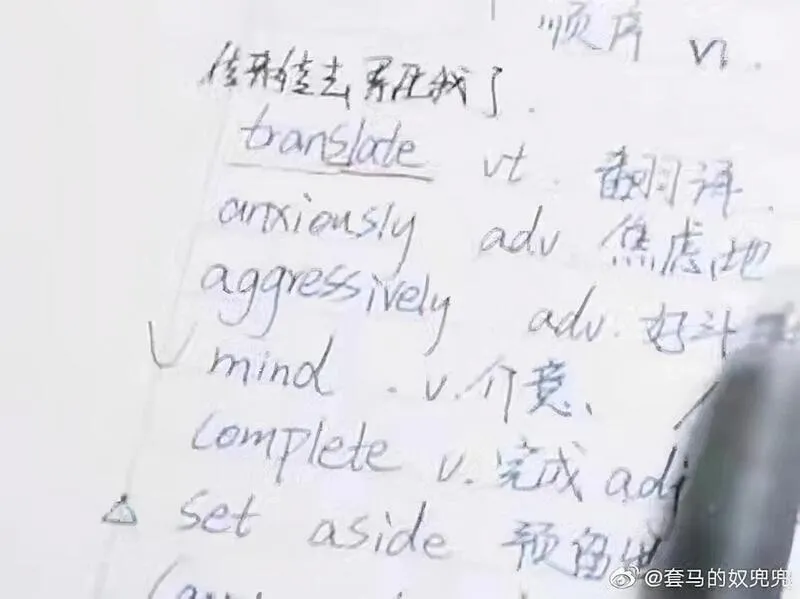 顺序 vi.
传来传去,累死我了.
translate vt. 翻译
anxiously adv 焦虑地
aggressively adv. 好斗
mind . v. 介意、
complete v. 完成 adj
set aside 预留出
@套马的奴兜兜